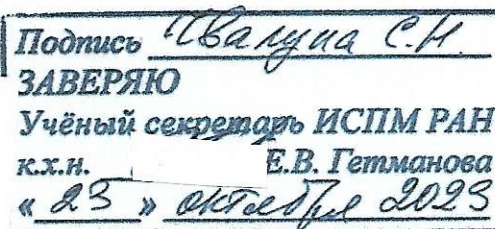 Подпись Чвалуна С.Н.
ЗАВЕРЯЮ
Учёный секретарь ИСПМ РАН
к.х.н. Е.В. Гетманова
« 23 » октября 2023